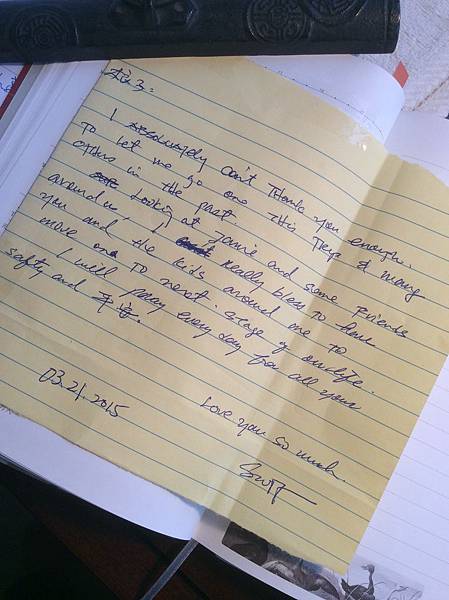 I absolutely can't Thank you enough.
To let me go one This Trip & many
others in the past
Looking at Jamie and some Friends
around us, I really bless to have
you and the kids around me to
move on To next stage of our life.
I will pray every day for all your
safty and 平安.
03.21.2015
Love you so much.
Scott